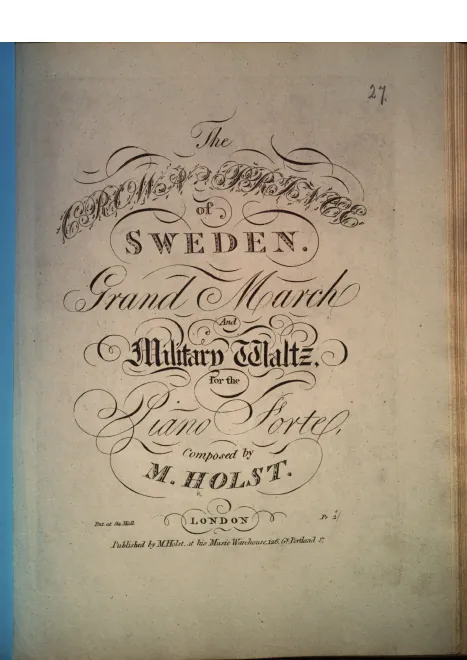 27.
The
CROWN PRINCE
of
SWEDEN.
Grand March
And
Military Waltz,
for the
Piano Forte,
Composed by
M. HOLST.
Ent. at Sta. Hall.
LONDON
Pr. 2/
Published by M. Holst, at his Music Warehouse, 126, Gt. Portland St.